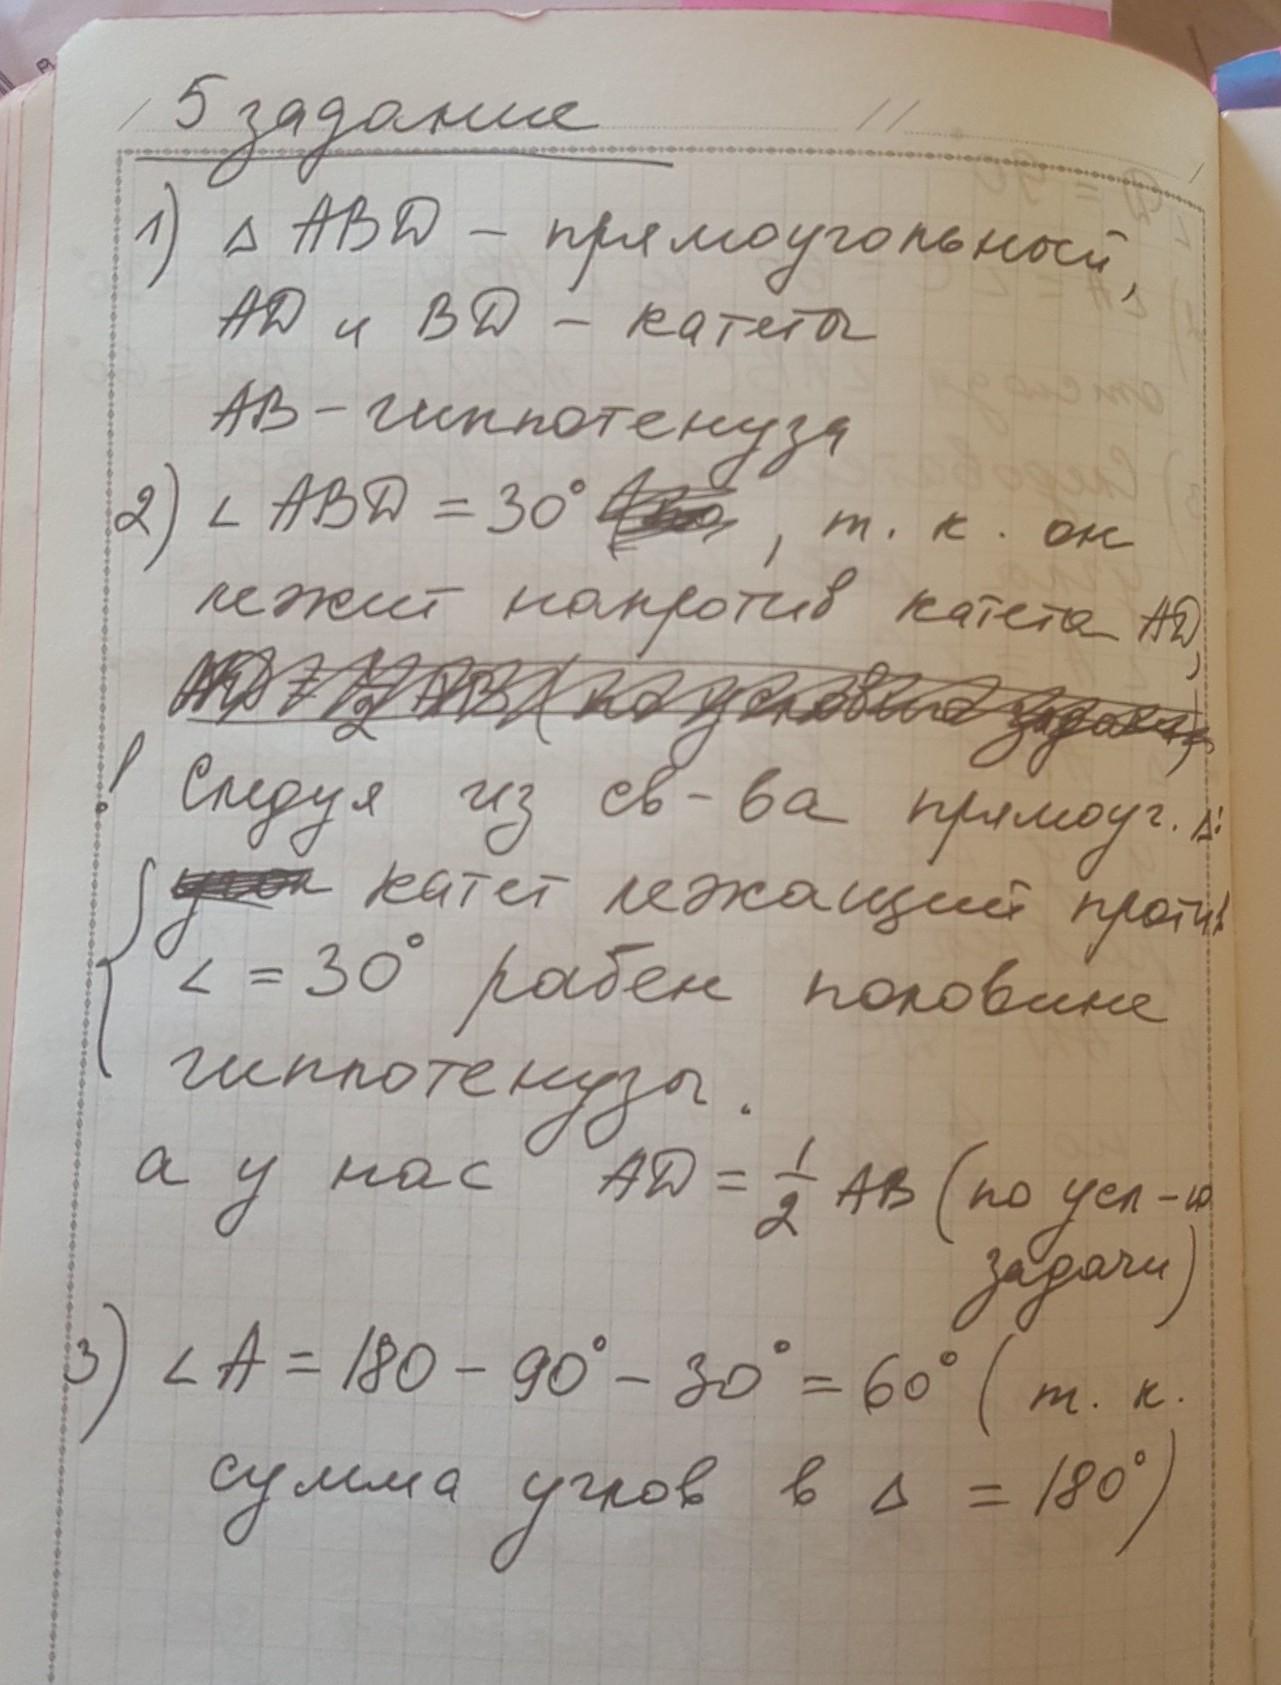 5 задание
1) Δ ABD – прямоугольный,
AD и BD – катеты
AB – гиппотенуза
2) ∠ ABD = 30° , т. к. он
лежит напротив катета AD,
! Следуя из св-ва прямоуг. Δ:
катет лежащий против
∠ = 30° равен половине
гиппотенузы.
а у нас AD = 1/2 AB (по усл-ю
задачи)
3) ∠A = 180 – 90° – 30° = 60° (т. к.
сумма углов в Δ = 180°)